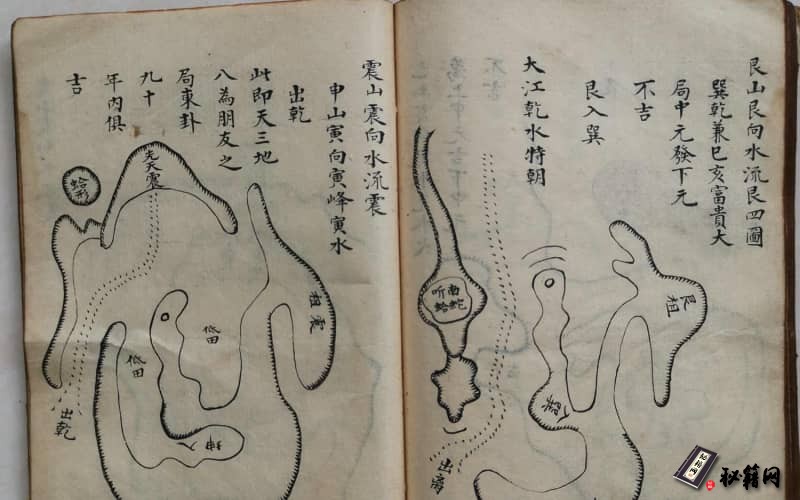 艮山艮向水流艮四圖
巽乾兼巳亥富貴大
局中元發下元
不吉
艮入巽
大江乾水特朝
艮祖
入巽
南蛇
听蛤
出离
震山震向水流震
申山寅向寅峰寅水
出乾
此即天三地
八為朋友之
局東卦
九十
年内俱
吉
先天震
蛤形
祖震
低田
低田
坤入
出乾
秘籍网